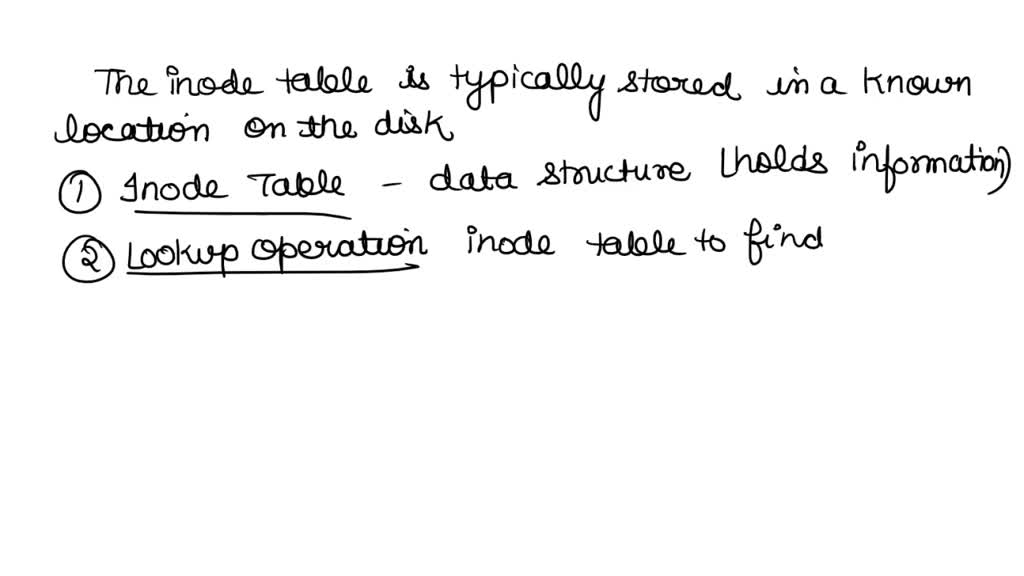 The inode table is typically stored in a known
location on the disk
① Inode Table - data structure (holds information)
② Lookup operation inode table to find